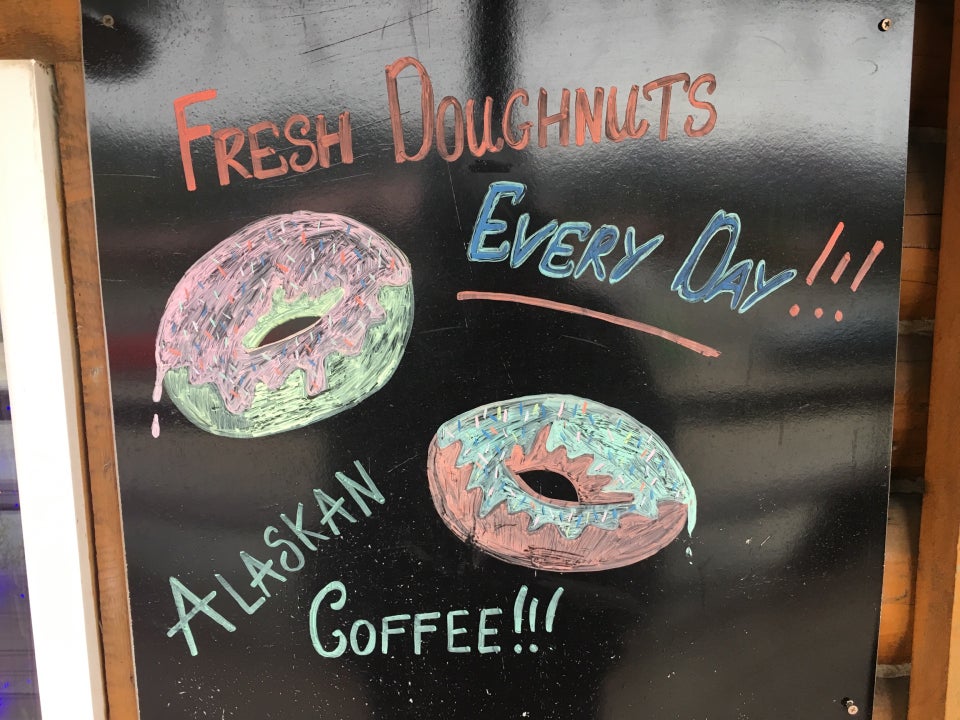 FRESH DOUGHNUTS
EVERY DAY!!!
ALASKAN
COFFEE!!!